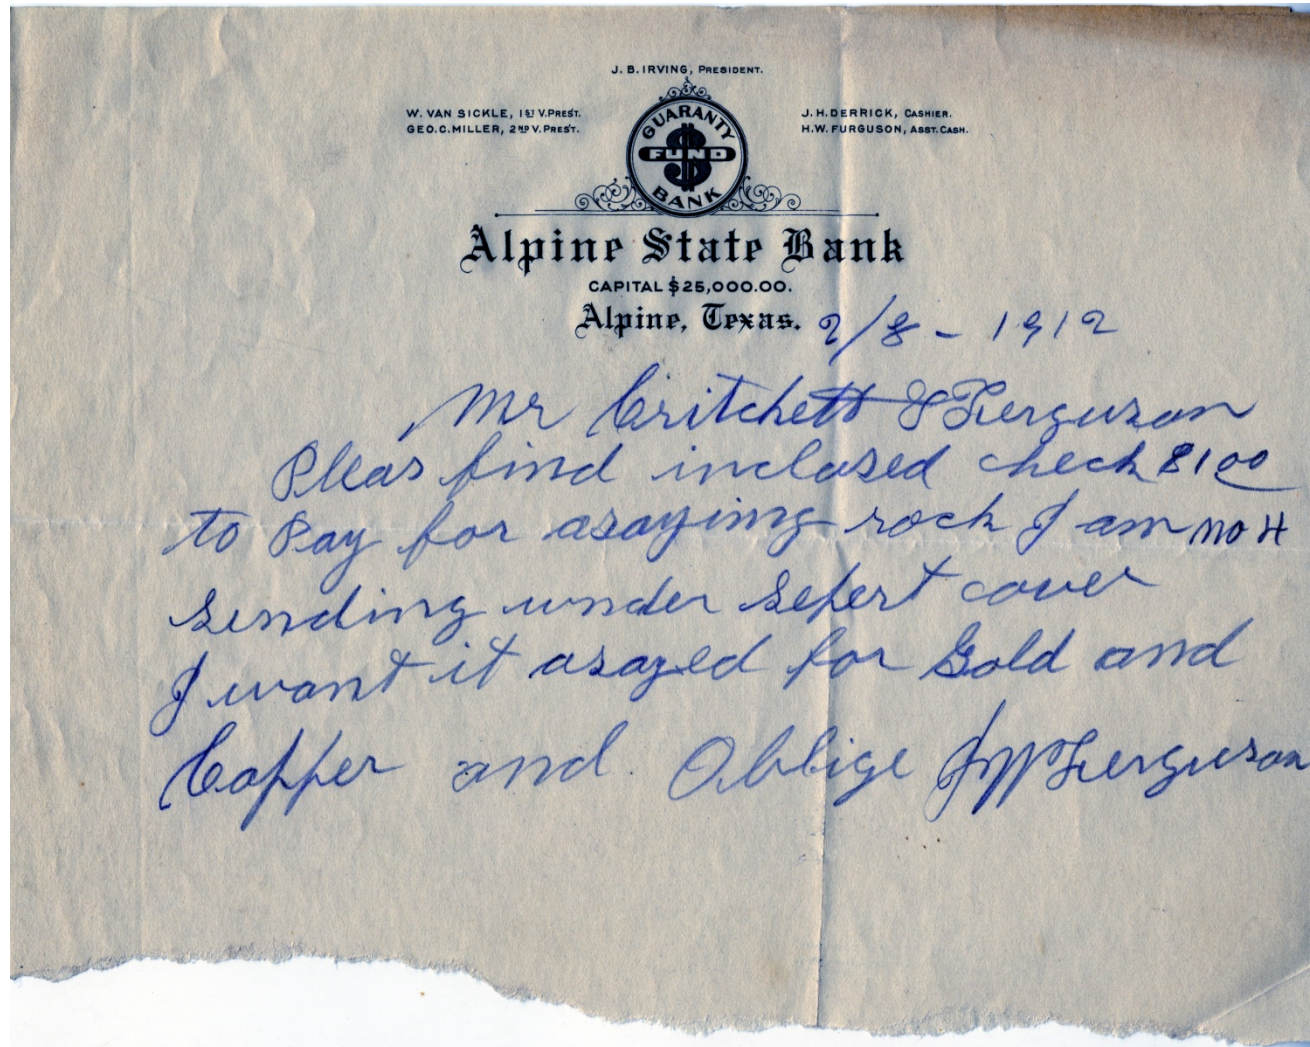 J. B. IRVING, PRESIDENT.
W. VAN SICKLE, 1ST V. PREST.
GEO. C. MILLER, 2ND V. PREST.
J. H. DERRICK, CASHIER.
H. W. FURGUSON, ASST. CASH.
GUARANTY
FUND
BANK
Alpine State Bank
CAPITAL $25,000.00.
Alpine, Texas. 2/8 - 1912
Mr Critchett & Ferguson
Pleas find inclosed check $1 00
to Pay for asaying rock I am
sending under sepert cover
I want it asayed for Gold and
Copper and Oblige J W Ferguson